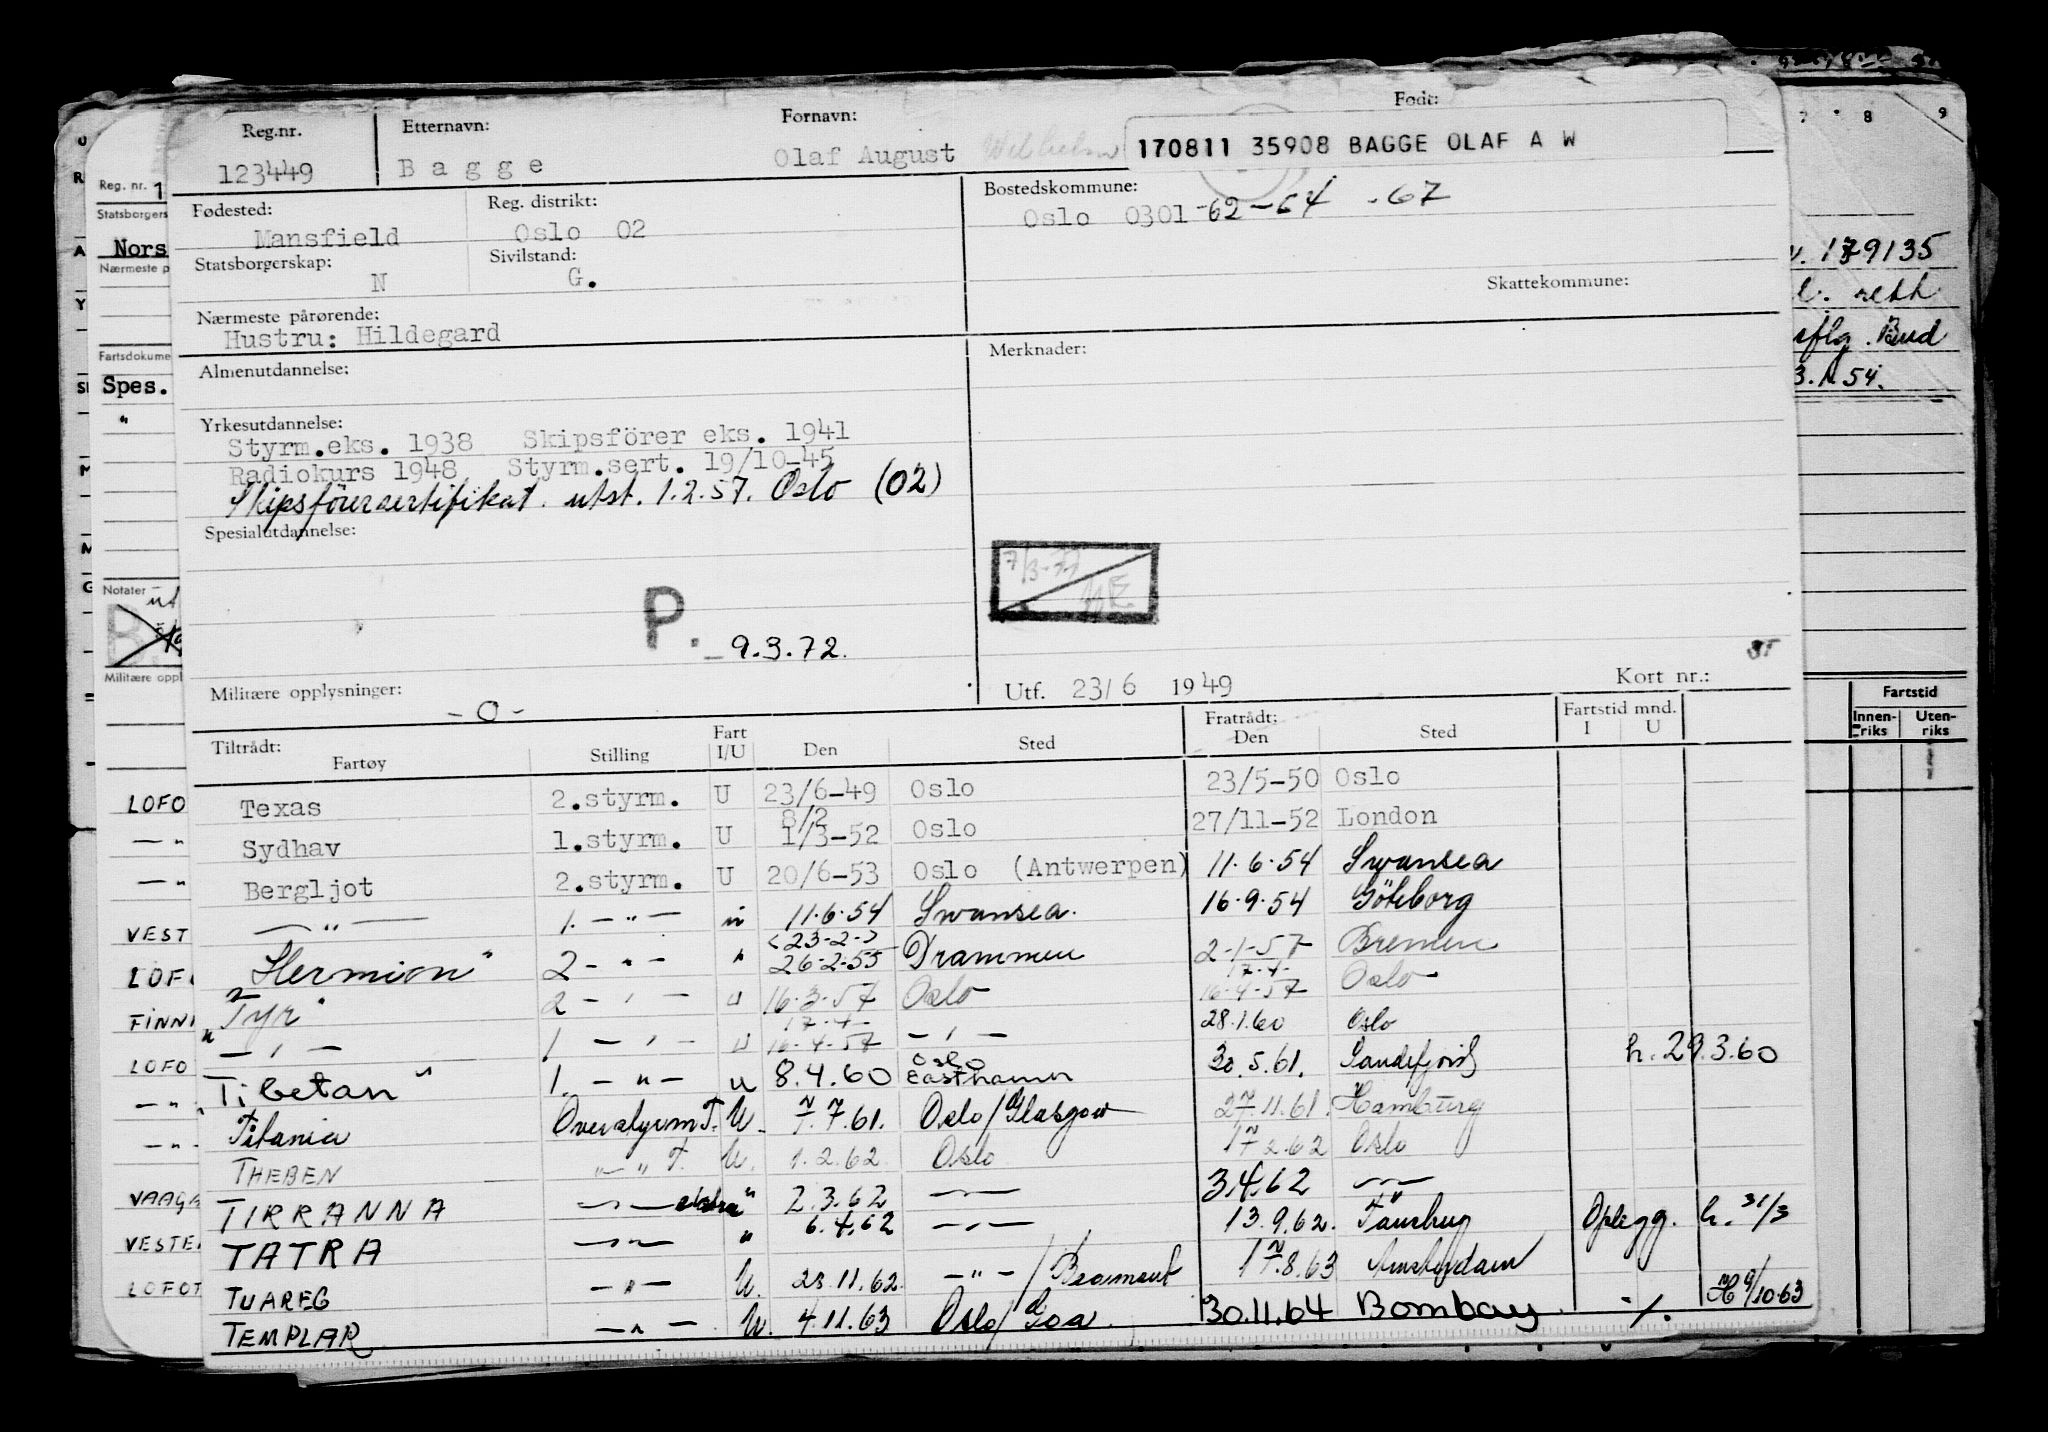 Reg.nr. Etternavn: Fornavn: Født:
123449 Bagge Olaf August Wilhelm 170811 35908 BAGGE OLAF A W
Fødested: Reg. distrikt: Bostedskommune:
Mansfield Oslo 02 Oslo 0301 -62-64 -67
Statsborgerskap: Sivilstand:
N G.
Skattekommune:
Nærmeste pårørende:
Hustru: Hildegard
Almenutdannelse: Merknader:
Yrkesutdannelse:
Styrm.eks. 1938 Skipsförer eks. 1941
Radiokurs 1948 Styrm.sert. 19/10-45
Skipsförersertifikat utst. 1.2.57. Oslo (02)
Spesialutdannelse:
P. 9.3.72.
Militære opplysninger: Utf. 23/6 1949 Kort nr.:
-0-
Tiltrådt: Fratrådt: Fartstid mnd.
Fartøy Stilling Fart I/U Den Sted Den Sted I U
Texas 2.styrm. U 23/6-49 Oslo 23/5-50 Oslo
8/2
Sydhav 1.styrm. U 1/3-52 Oslo 27/11-52 London
Bergljot 2.styrm. U 20/6-53 Oslo (Antwerpen) 11.6.54 Swansea
—"— 1. —"— " 11.6.54 Swansea. 16.9.54 Göteborg
(23-2-)
"Hermion" 2 - " - " 26-2-55 Drammen 2-1-57 Bremen
17-4-
"Tyr" 2 - " - U 16-3-57 Oslo 16-4-57 Oslo
17-4-
— " — 1 — " — U 16-4-57 — " — 28.1.60 Oslo
Oslo
Tibetan" 1. — " — U 8.4.60 Easthamn 30.5.61. Sandefjord h. 29.3.60
Titania Overstyrm T. U. 7.7.61. Oslo/Glasgow 27.11.61. Hamburg
THEBEN — " T. U. 1.2.62 Oslo 17.2.62 Oslo
TIRRANNA — " — ekstra " 2.3.62 — " — 3.4.62 — " —
TATRA — " — " 6.4.62 — " — 13.9.62. Tönsberg Oplegg. h. 31/3
TUAREG — " — U. 23.11.62. — " —/Beaumont 17.8.63 Amsterdam
H 9/10.63
TEMPLAR — " — U. 4.11.63 Oslo/Goa 30.11.64 Bombay ./.
Reg. nr. 1
Statsborgers
Nors
Nærmeste p
Fartsdokume
Spes.
"
Notater
Militære oppl
LOFO
— "
— "
VEST
LOFO
FINN
LOFO
— "
— "
VAAGA
VESTE
LOFOT
7 8 9
179135
3.1.54.
Fartstid
Innen-riks Uten-riks